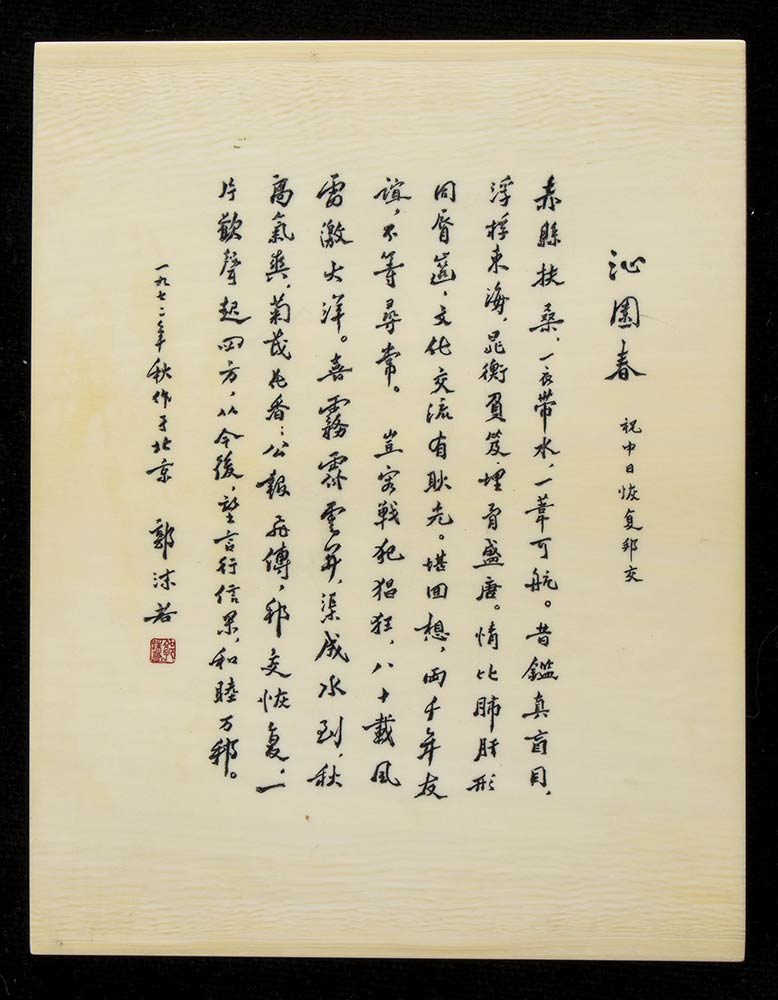 沁園春
祝中日恢复邦交
赤縣扶桑，一衣帶水，一葦可航。昔鑑真盲目，
浮桴東海，晁衡負笈，埋骨盛唐。情比肺肝，形
同唇齒，文化交流有耿光。堪回想，兩千年友
誼，不等尋常。 豈容戰犯猖狂，八十載風
雷激大洋。喜霧霽雲開，渠成水到，秋
高氣爽，菊茂花香；公報飛傳，邦交恢复，一
片歡聲起四方，从今後，望言行信果，和睦万邦。
一九七二年秋作于北京 郭沫若